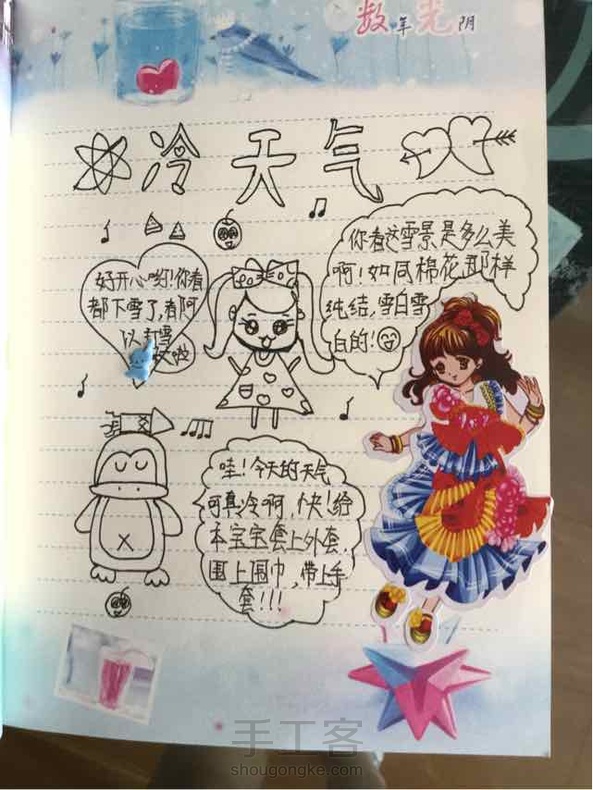 数年光阴
冷天气
好开心哟!你看
都下雪了,都可
以打雪
你看这雪景是多么美
啊!如同棉花那样
纯结,雪白雪
白的!
哇!今天的天气
可真冷啊,快!给
本宝宝套上外套,
围上围巾,带上手
套!!!
手工客
shougongke.com